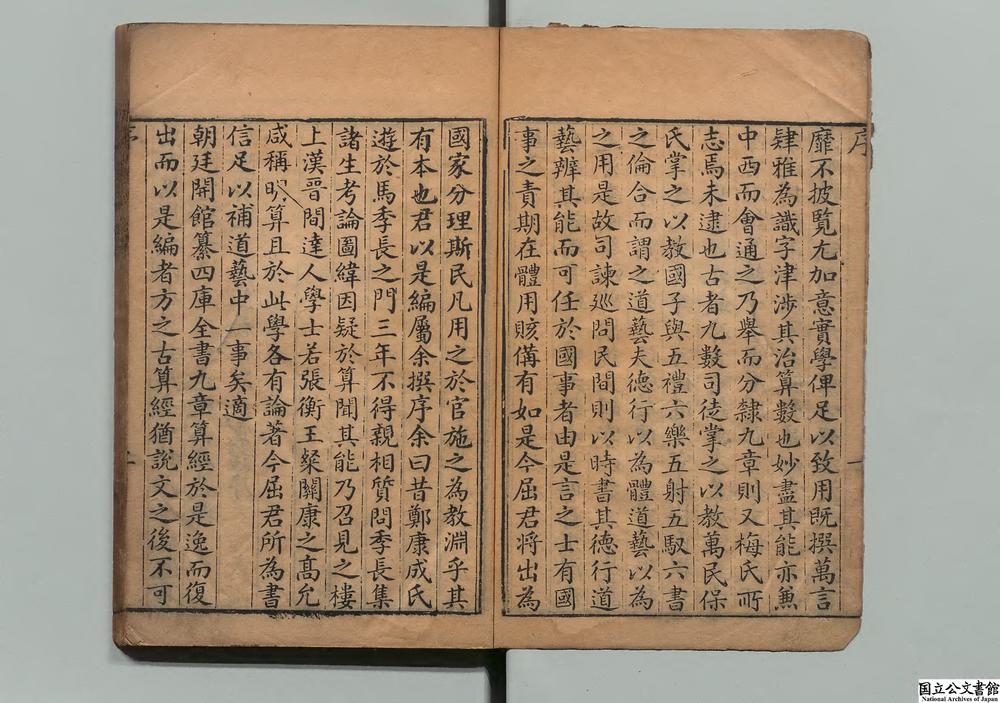 序
靡不披覽尢加意實學俾足以致用既撰萬言
肄雅為識字津涉其治算數也妙盡其能亦兼
中西而會通之乃舉而分隸九章則又梅氏所
志焉未逮也古者九數司徒掌之以教萬民保
氏掌之以教國子與五禮六樂五射五馭六書
之倫合而謂之道藝夫德行以為體道藝以為
之用是故司諫巡問民間則以時書其德行道
藝辨其能而可任於國事者由是言之士有國
事之責期在體用賅備有如是今屈君將出為
一
國家分理斯民凡用之於官施之為教淵乎其
有本也君以是編屬余撰序余曰昔鄭康成氏
遊於馬季長之門三年不得親相質問季長集
諸生考論圖緯因疑於算聞其能乃召見之樓
上漢晉間達人學士若張衡王粲關康之高允
咸稱明算且於此學各有論著今屈君所為書
信足以補道藝中一事矣適
朝廷開館纂四庫全書九章算經於是逸而復
出而以是編者方之古算經猶說文之後不可